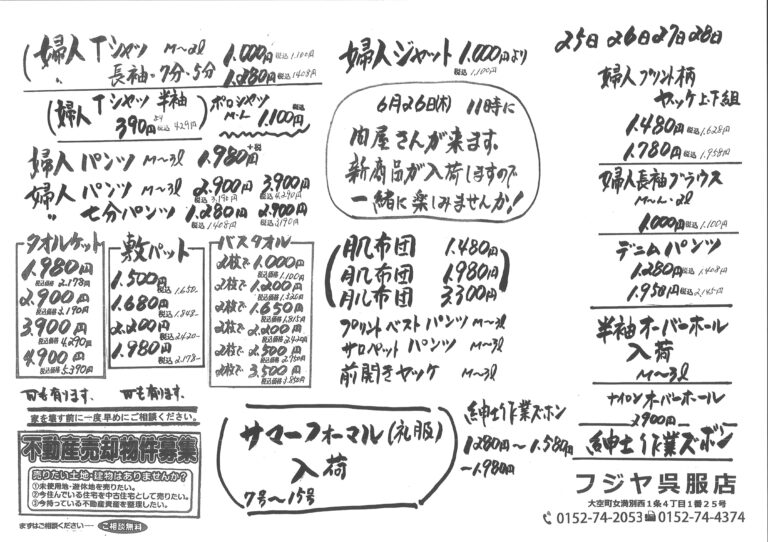 婦人Tシャツ M〜2l 1.000円 税込 1.100円
〃 長袖・7分・5分 1.280円 税込 1408円
婦人Tシャツ 半袖
390円より 税込 429円
ポロシャツ
M・L 1.100円 税込
婦人パンツ M〜3l 1.980円+税
婦人パンツ M〜3l 2.900円 税込 3.190円 3.900円 税込 4.290円
〃 七分パンツ 1.280円 税込 1408円 2.900円 税込 3.190円
タオルケット
1.980円
税込価格 2.178円
2.900円
税込価格 3.190円
3.900円
税込価格 4.290円
4.900円
税込価格 5.390円
Wも有ります。
敷パット
1.500円
税込 1.650-
1.680円
税込 1.848-
2.200円
税込 2.420-
1.980円
税込 2.178-
Wも有ります。
バスタオル
2枚で 1.000円
税込価格 1.100円
2枚で 1.200円
税込価格 1.320円
2枚で 1.650円
税込価格 1.815円
2枚で 2.200円
税込価格 2.420円
2枚で 2.500円
税込価格 2.750円
2枚で 3.500円
税込価格 3.850円
家を壊す前に一度早めにご相談ください。
不動産売却物件募集
売りたい土地・建物はありませんか？
①未使用地・遊休地を売りたい。
②今住んでいる住宅を中古住宅として売りたい。
③今持っている不動産資産を整理したい。
まずはご相談ください── ご相談無料
婦人ジャット 1.000円より
税込 1.100円
6月26日(木) 11時に
問屋さんが来ます。
新商品が入荷しますので
一緒に楽しみませんか!
肌布団 1.480円
肌布団 1.980円
肌布団 3.300円
プリントベストパンツ M〜3l
サロペットパンツ M〜3l
前開きヤッケ M〜3l
サマーフォーマル(礼服)
入荷
7号〜15号
紳士作業ズボン
1.280円〜1.580円
〜1.980円
25日 26日 27日 28日
婦人プリント柄
ヤッケ上下組
1.480円 税込 1.628円
1.780円 税込 1.958円
婦人長袖ブラウス
M〜L・2l
1.000円 税込 1.100円
デニムパンツ
1.280円 税込 1.408円
1.958円 税込 2.145円
半袖オーバーホール
入荷
M〜3l
ナイロンオーバーホール
2900円
紳士作業ズボン
フジヤ呉服店
大空町女満別西1条4丁目1番25号
0152-74-2053 0152-74-4374